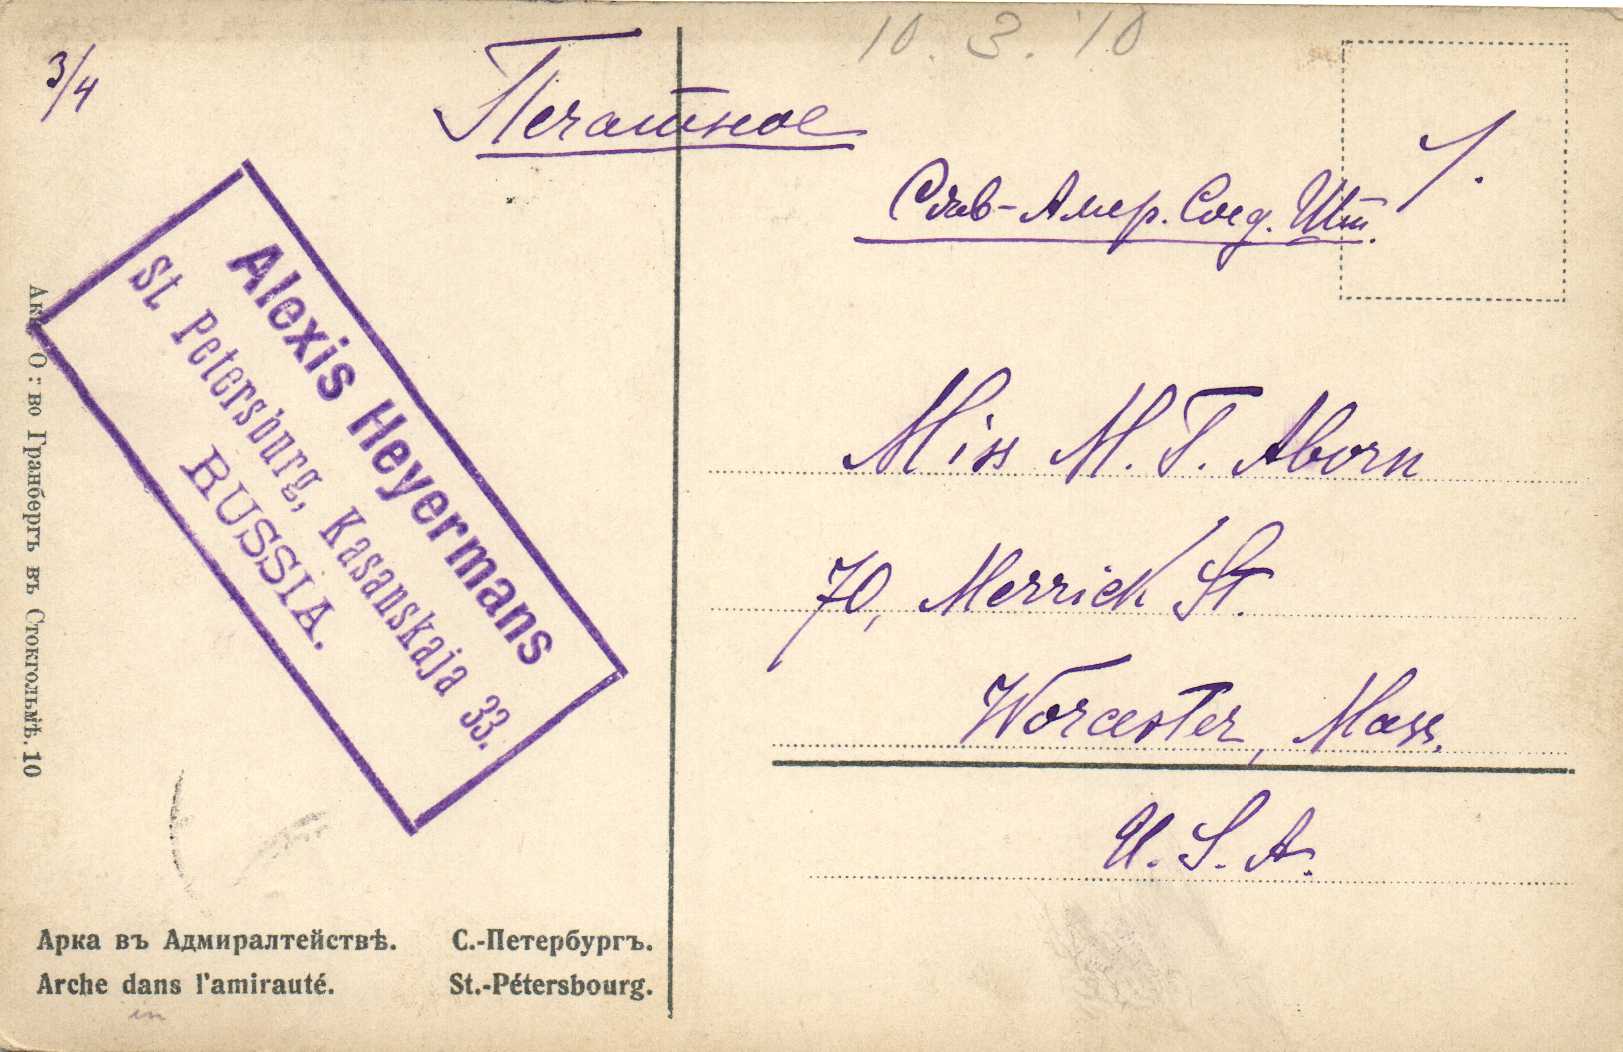 10.3.'10
3/4
Печатное
Сѣв-Амер. Соед. Шт.
Alexis Heyermans
St. Petersburg, Kasanskaja 33.
RUSSIA.
Miss M. T. Aborn
70, Merrick St.
Worcester, Mass.
U. S. A.
О: во Гранбергъ въ Стокгольмѣ. 10
Арка въ Адмиралтействѣ. С.-Петербургъ.
Arche dans l'amirauté. St.-Pétersbourg.
in